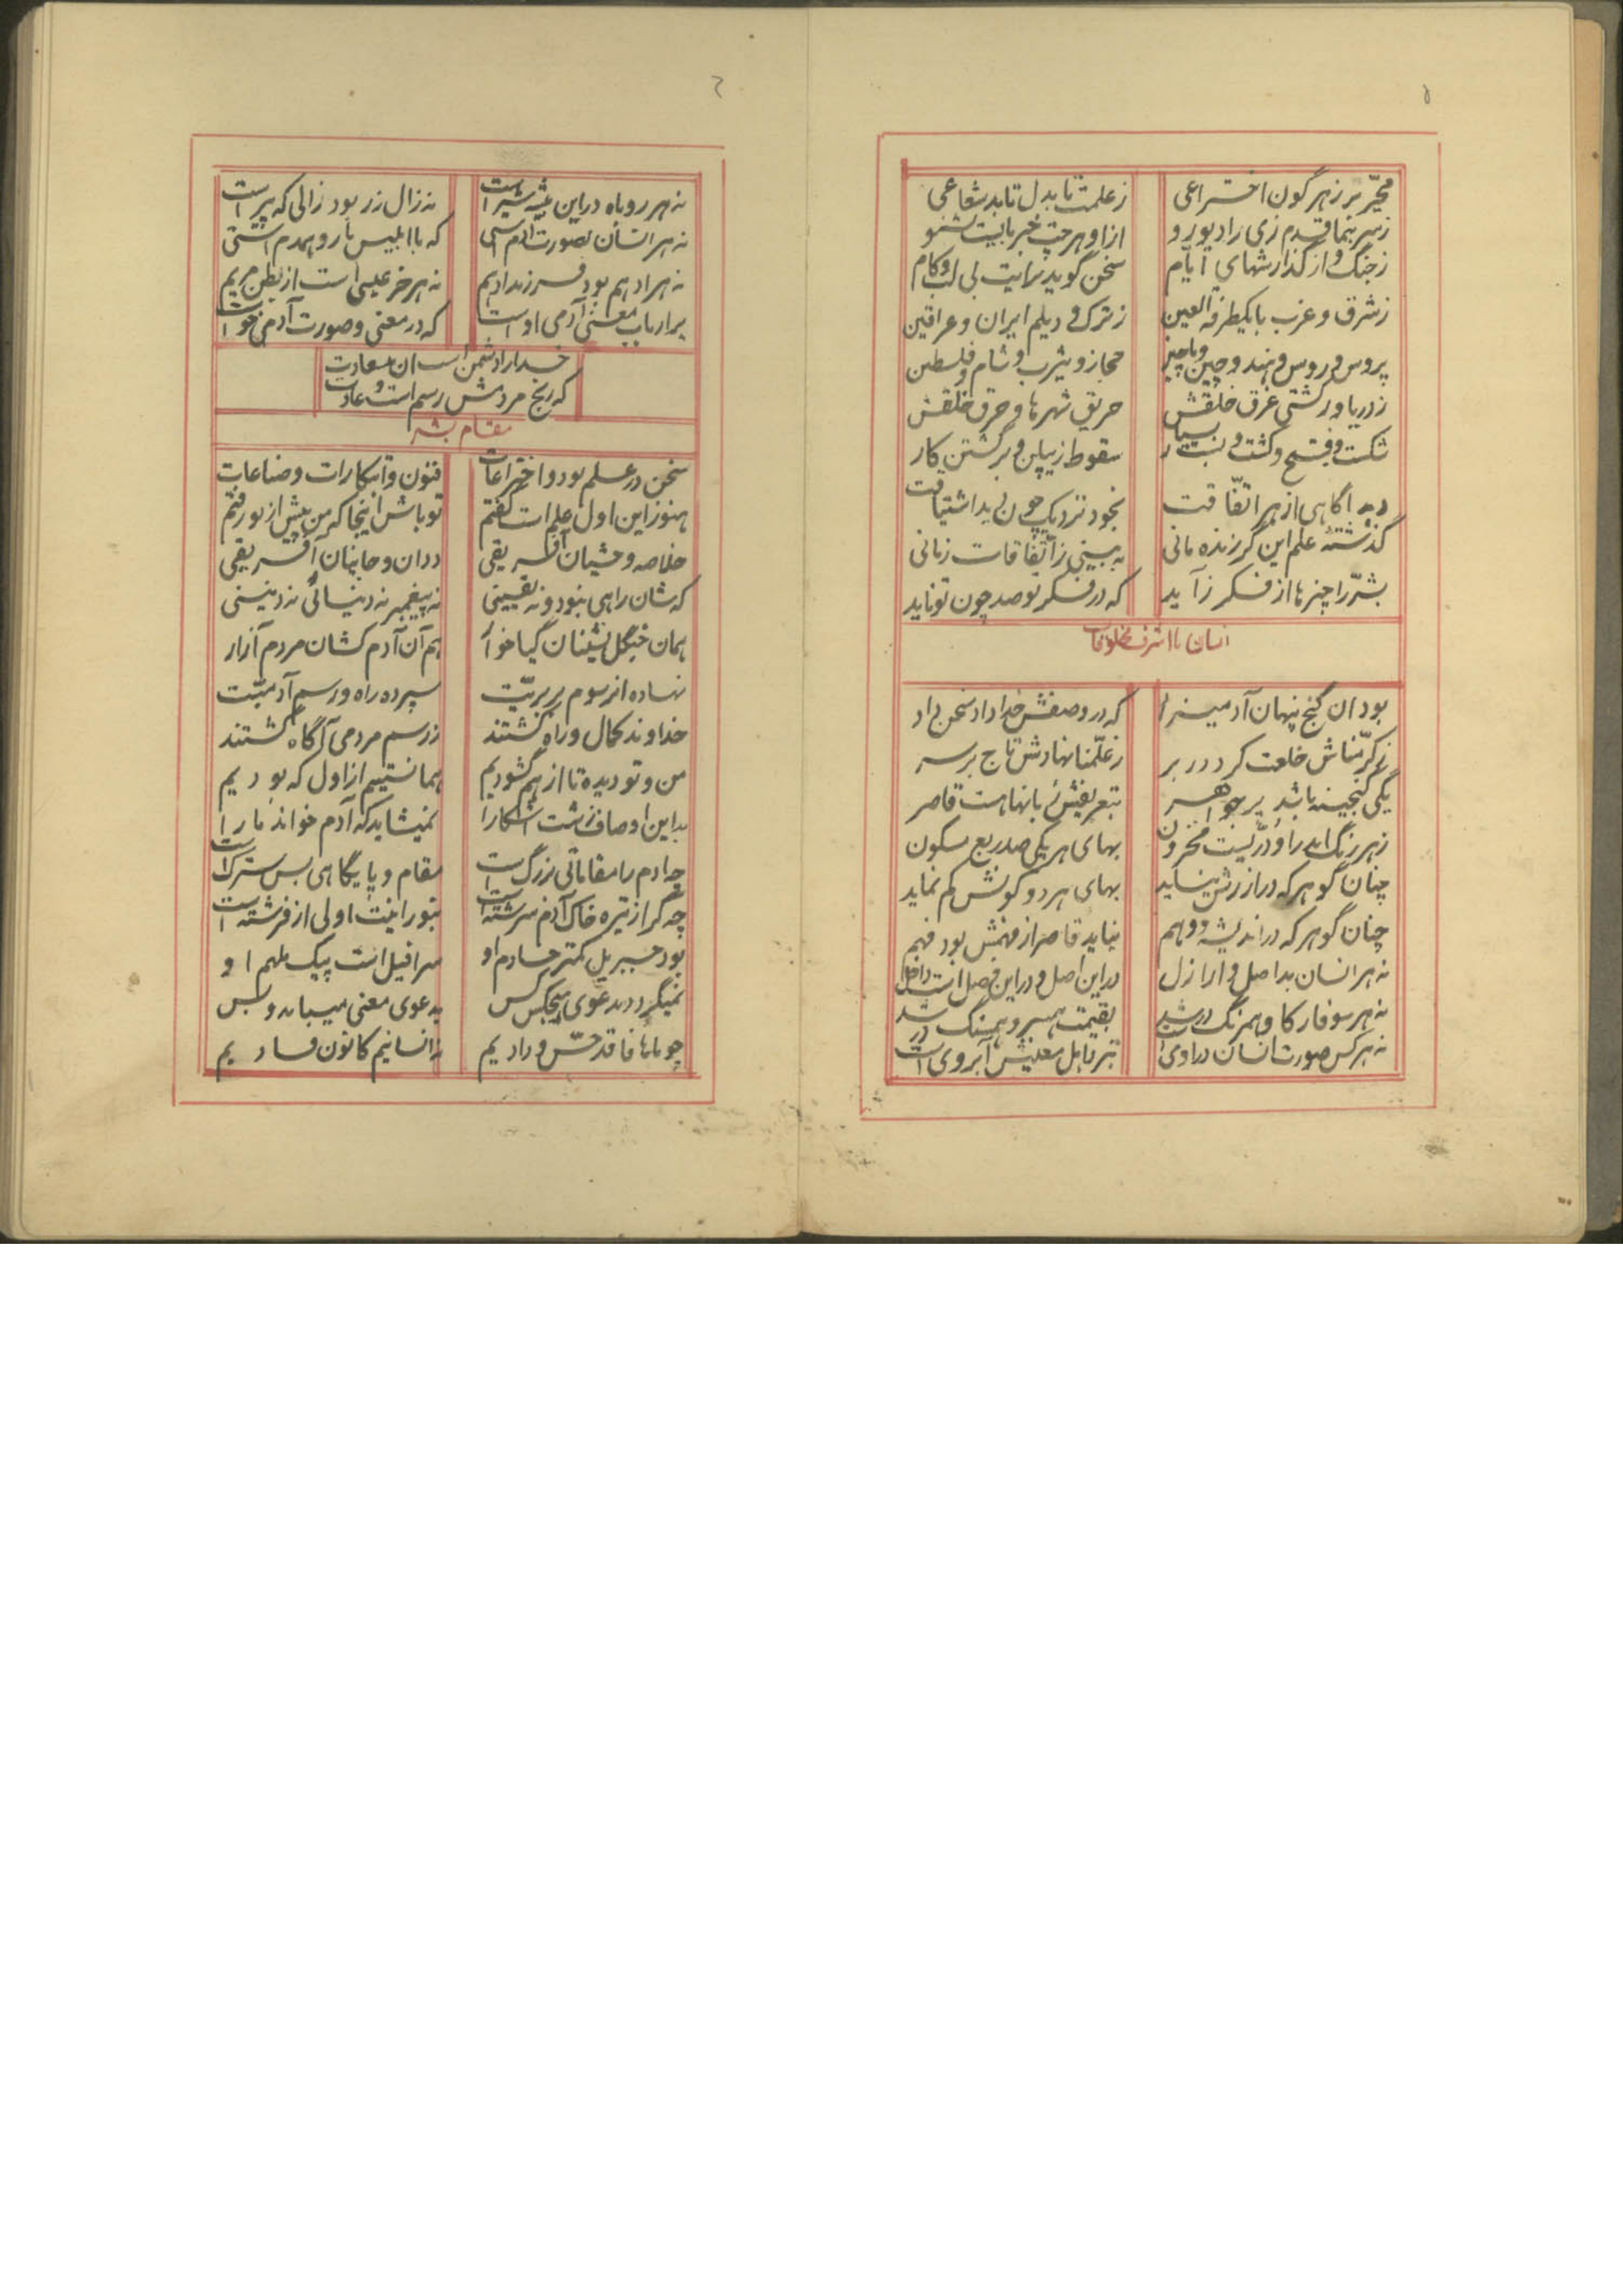 محیّر بر ز هر گون اختراعی ز علمت تا بدل تابد شعاعی
ز سر بنما قدم زی رادیو رو از او هر چت خبر بایست بشنو
ز جنگ و از گذارشهای ایام سخن گوید برایت بی لب و کام
ز شرق و غرب با یکطرفة العین ز ترک و دیلم ایران و عراقین
پروس و روس و هند و چین و ماچین حجاز و یثرب و شام و فلسطین
ز دریا و ز کشتی غرق خلقش حریق شهرها و حرق خلقش
شکست و فتح و کشت و بست بسیار سقوط زیپلن و برگشتن کار
دهد آگاهی از هر اتّفاقت بخود نزدیک چون بیند اشتیاقت
گذشته علم این گر زنده مانی به بینی ز اتّفاقات زمانی
بشر را چیزها از فکر زاید که در فکر تو صد چون تو ناید
انسان یا اشرف مخلوقات
بود آن گنج پنهان آدمیزاد که در وصفش خدا داد سخن داد
ز کرّمناش خلعت کرد در بر ز علّمنا نهادش تاج بر سر
یکی گنجینه باشد پر جواهر بتعریفش زبانها هست قاصر
ز هر رنگ اندر او درّیست مخزون بهای هر یکی صد ربع مسکون
چنان گوهر که در ارزش نیاید بهای هر دو کونش کم نماید
چنان گوهر که در اندیشه و وهم نیاید قاصر از فهمش بود فهم
نه هر انسان بد اصل و اراذل در این اصل و در این فصل است داخل
نه هر سوفار کا و همرنگ در شد بقیمت همسر و همسنگ در شد
نه هر کس صورت انسان در اوی است
نه هر روباه در این بیشه شیر است نه زال زر بود زالی که پیر است
نه هر انسان بصورت آدمستی که با ابلیس یار و همدمستی
نه هر ادهم بود فرزند ادهم نه هر خر عیسی است از بطن مریم
بر ارباب معنی آدمی اوست که در معنی و صورت آدمی خوست
خدا را دشمن است آن بیسعادت
که رنج مردمش رسم است و عادت
مقام بشر
سخن در علم بود و اختراعات فنون و ابتکارات و صناعات
هنوز این اول علم است گفتم تو باش اینجا که من پیش از تو رفتم
خلاصه وحشیان آفریقی ددان و جانیان آفریقی
که شان راهی نبود و نه یقینی نه پیغمبر نه دنیائی نه دینی
همان جنگل نشینان گیا خوار هم آن آدم کشان مردم آزار
نهاده از رسوم بربریّت سپرده راه و رسم آدمیّت
خداوند کمال و راه گشتند ز رسم مردمی آگاه گشتند
من و تو دیده تا از هم گشودیم همانستیم از اول که بودیم
بداین اوصاف زشت آشکارا نمیشاید که آدم خواند ما را
چه آدم را مقاماتی بزرگ است مقام و پایگاهی بس سترگ است
چه گر از تیره خاک آدم سرشته است بنورانیت اولی از فرشته است
بود جبریل کمتر خادم او سرافیل است پیک ملهم او
نمیگردد بدعوی هیچکس کس بدعوی معنی میباید و بس
چو ماها فاقد حسّ و رادیم نه انسانیم کانون فسادیم